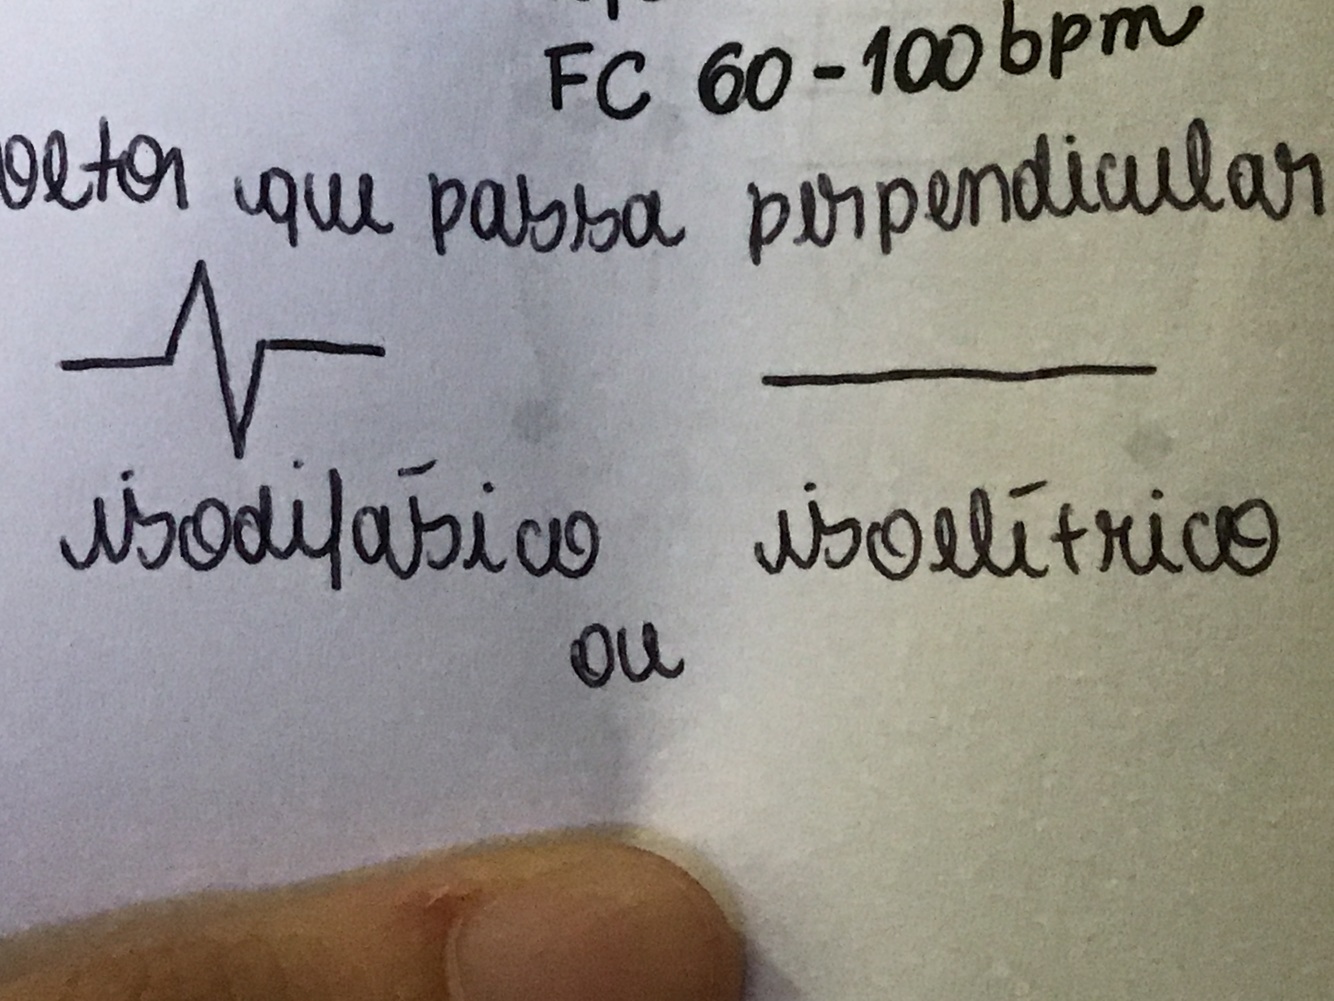 FC 60-100 bpm
vetor que passa perpendicular
isodifásico isoelétrico
ou